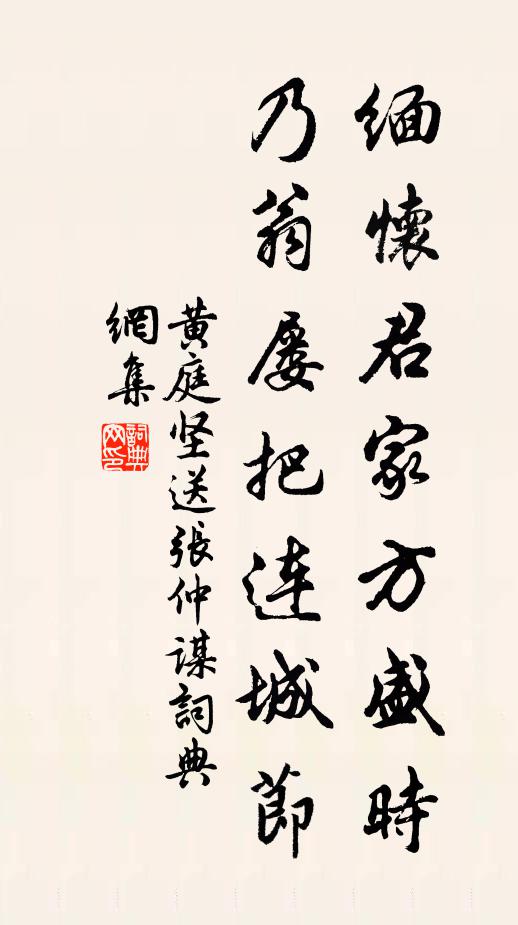 缅懷君家方盛時
乃翁屡把连城節
黄庭坚送張仲谋詞典
網集
詞典
网印